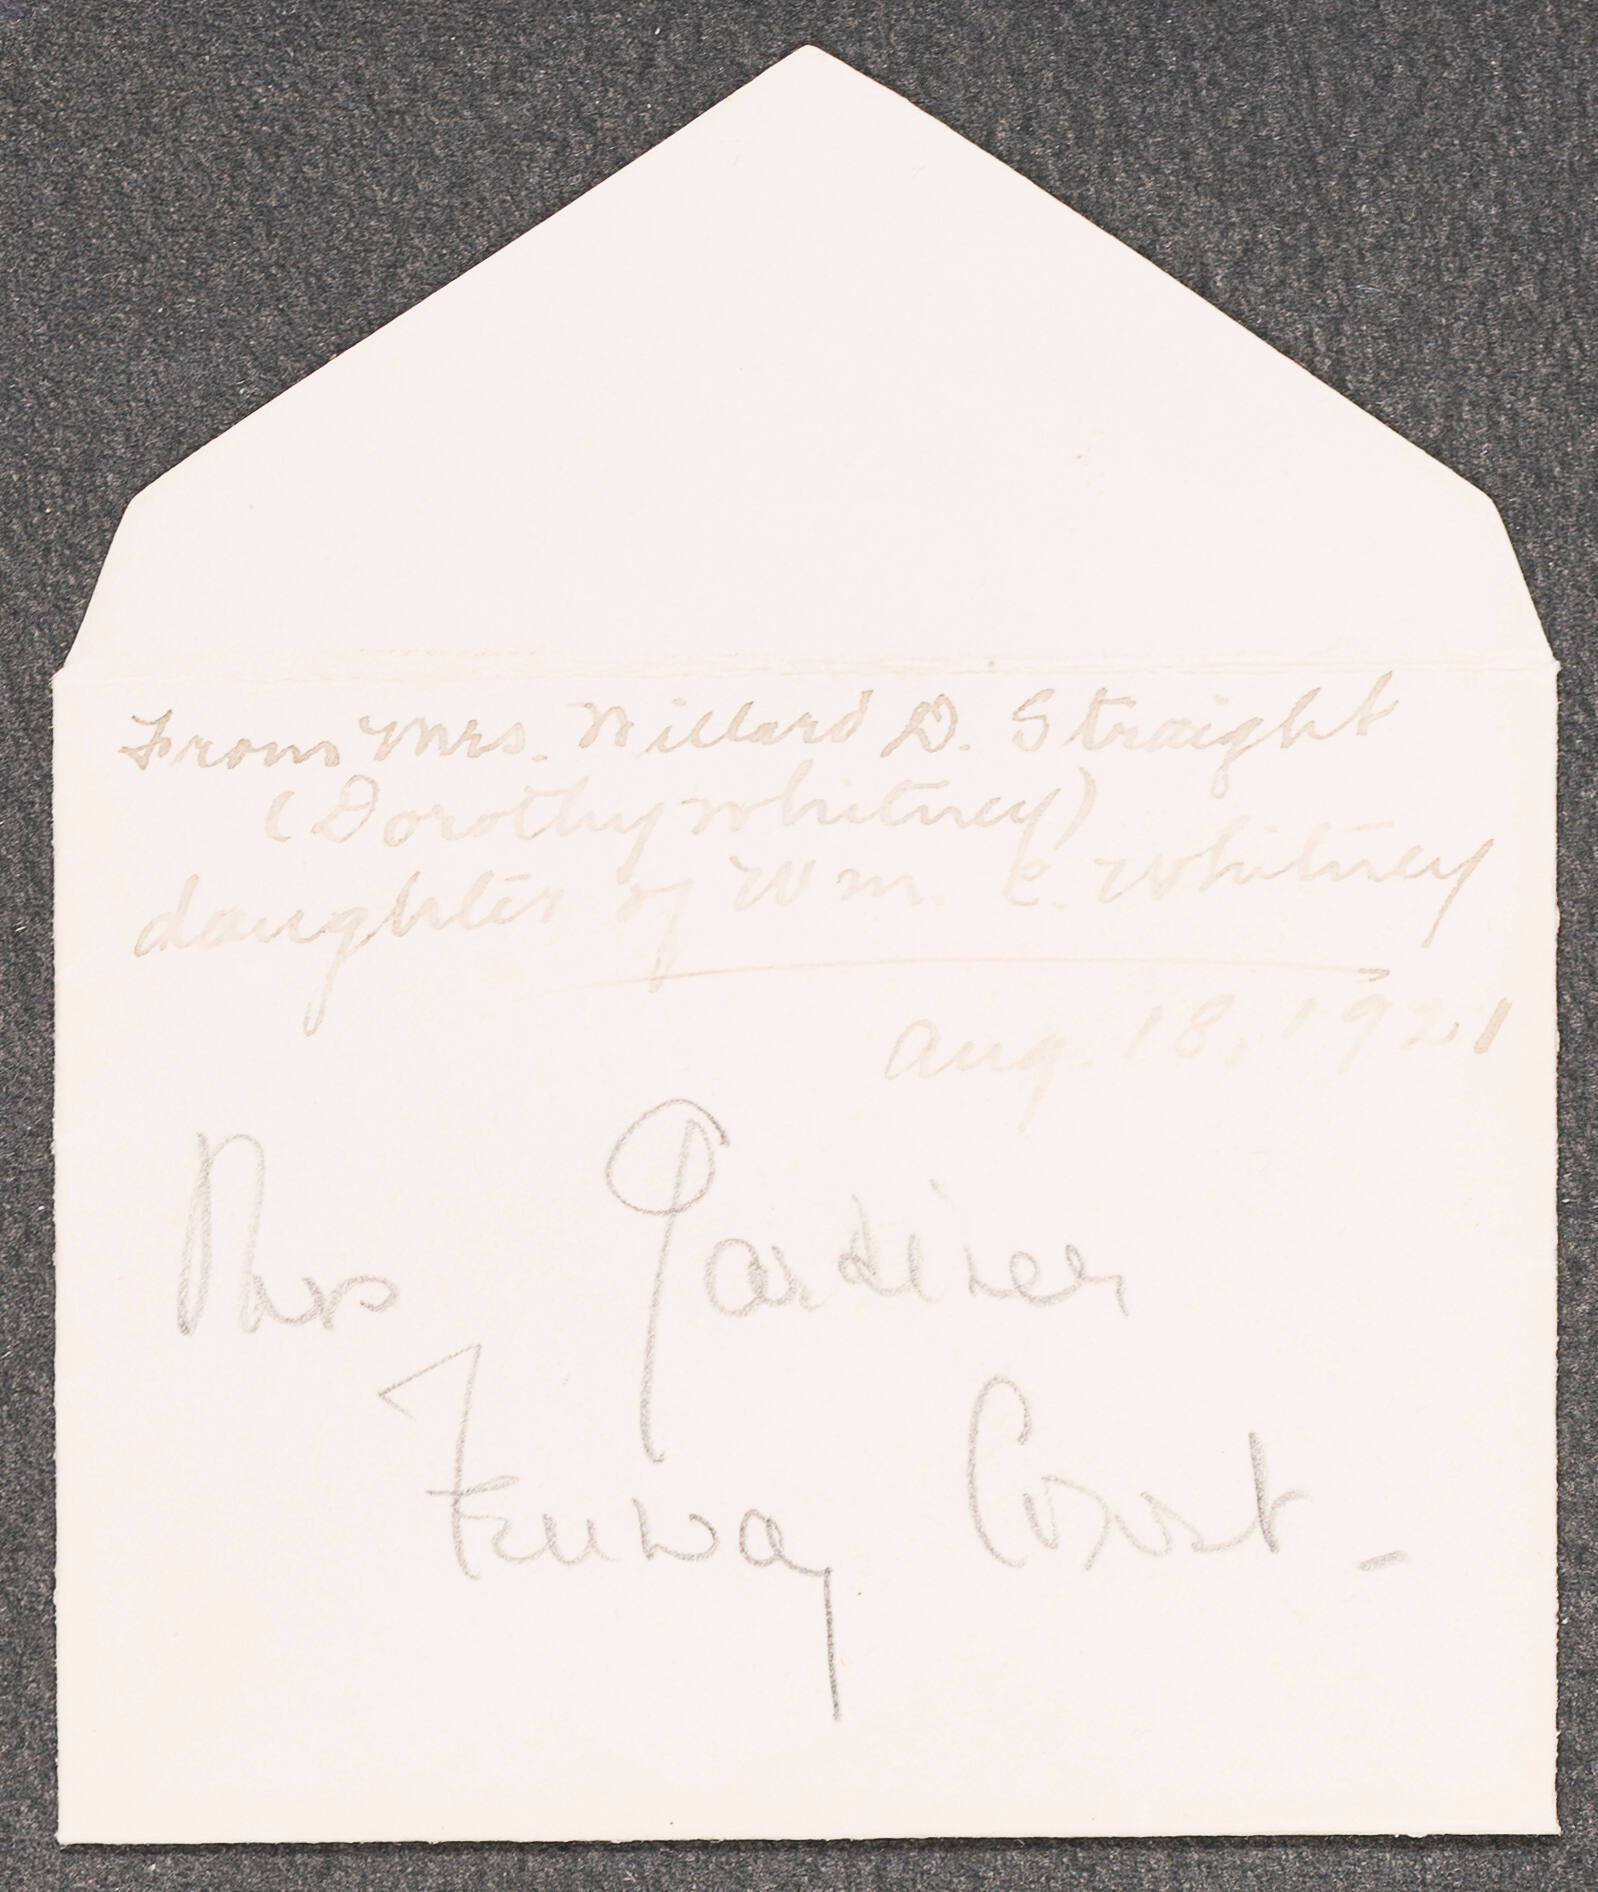 From Mrs. Willard D. Straight
(Dorothy Whitney)
daughter of Wm. C. Whitney
Aug. 18, 1921
Mrs Gardiner
Fenway Court -